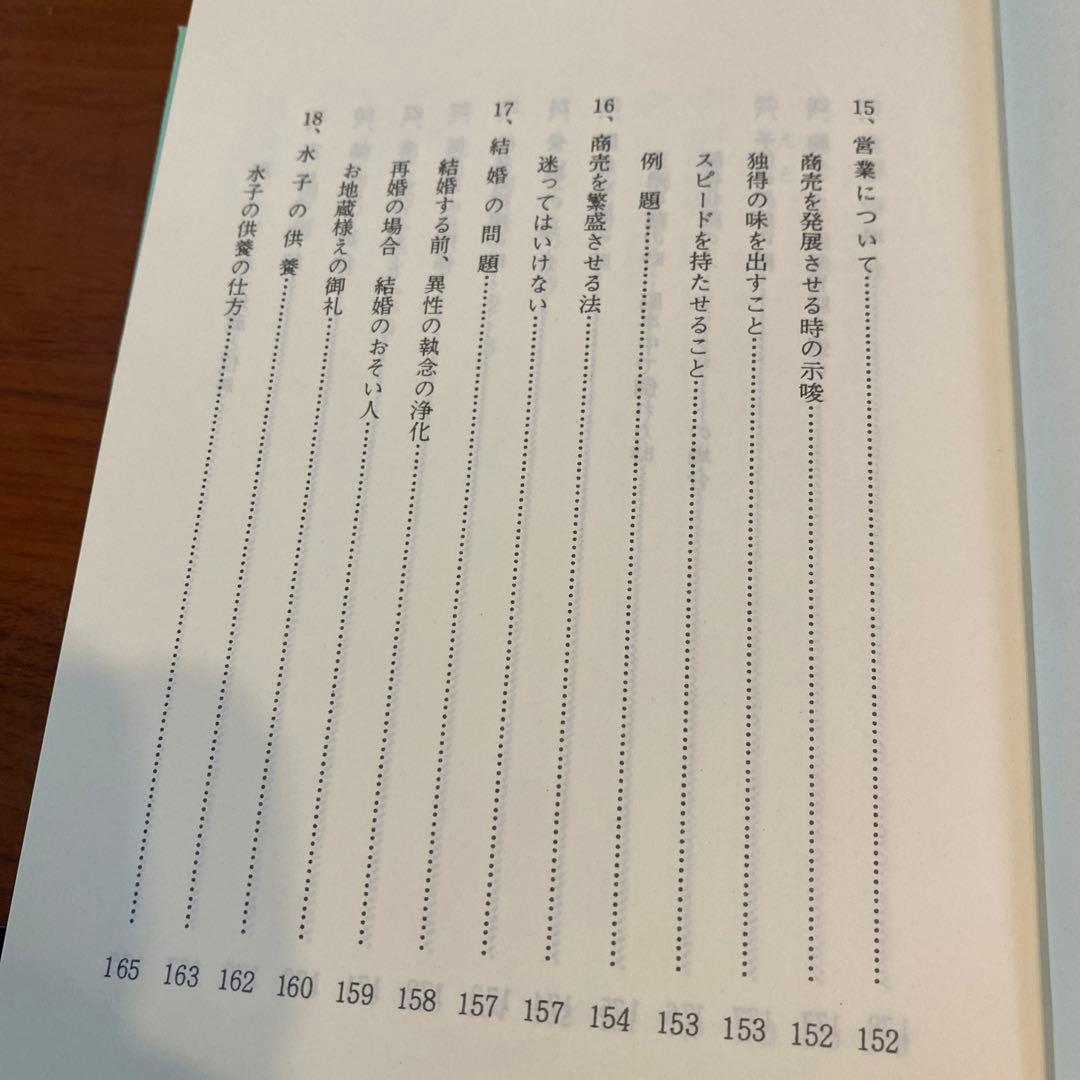 15、営業について……………152
商売を発展させる時の示唆……………152
独得の味を出すこと……………153
スピードを持たせること……………153
例題……………154
16、商売を繁盛させる法……………157
迷ってはいけない……………157
17、結婚の問題……………158
結婚する前、異性の執念の浄化……………159
再婚の場合　結婚のおそい人……………160
お地蔵様えの御礼……………162
18、水子の供養……………163
水子の供養の仕方……………165